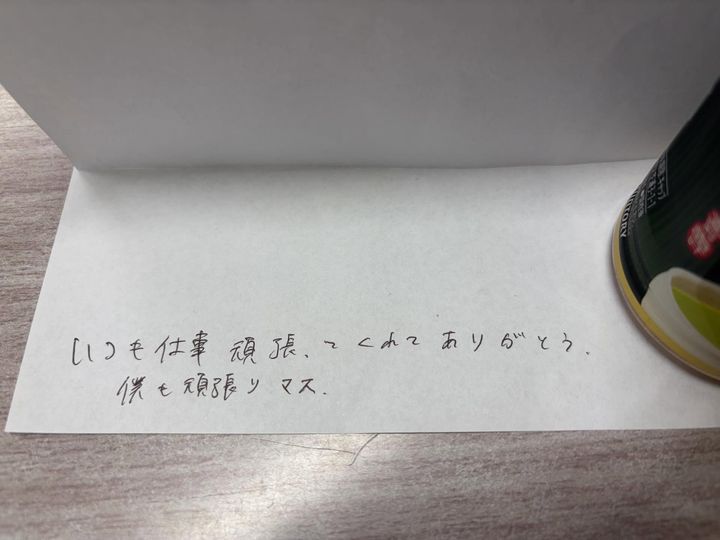 いつも仕事頑張ってくれてありがとう.
僕も頑張りマス.